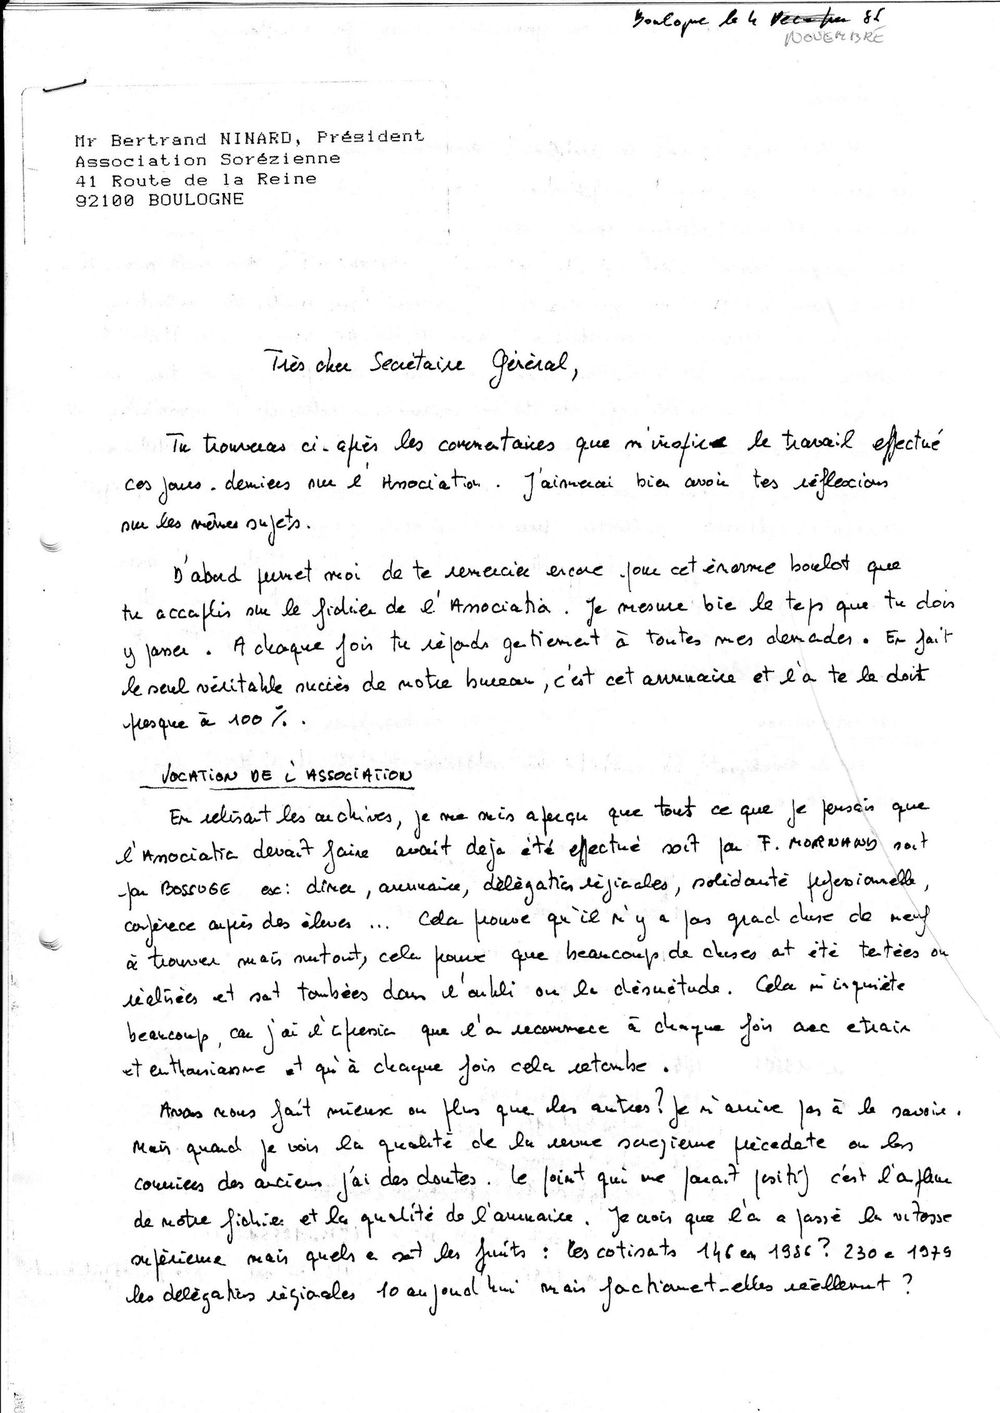 Boulogne le 4 Décembre 86
NOVEMBRE
Mr Bertrand NINARD, Président
Association Sorézienne
41 Route de la Reine
92100 BOULOGNE
Très cher Secrétaire Général,
Tu trouveras ci-après les commentaires que m'inspire le travail effectué
ces jours-derniers sur l'Association. J'aimerai bien avoir tes réflexions
sur les mêmes sujets.
D'abord permet moi de te remercier encore pour cet énorme boulot que
tu accomplis sur le fichier de l'Association. Je mesure bien le temps que tu dois
y passer. A chaque fois tu réponds gentiement à toutes mes demandes. En fait
le seul véritable succès de notre bureau, c'est cet annuaire et l'on te le doit
presque à 100%.
VOCATION DE L'ASSOCIATION
En relisant les archives, je me suis aperçu que tout ce que je pensais que
l'Association devait faire avait deja été effectué soit par F. MORNAND soit
par BOSSUGE ex: diner, annuaire, délégations régionales, solidarité professionnelle,
conférence auprès des élèves ... Cela prouve qu'il n'y a pas grand chose de neuf
à trouver mais surtout, cela prouve que beaucoup de choses ont été tentées ou
réalisées et sont tombées dans l'oubli ou la désuétude. Cela m'inquiète
beaucoup, car j'ai l'impression que l'on recommence à chaque fois avec entrain
et enthousiasme et qu'à chaque fois cela retombe.
Avons nous fait mieux ou plus que les autres? Je n'arrive pas à le savoir.
Mais quand je vois la qualité de la revue sorezienne précédente ou les
courriers des anciens j'ai des doutes. Le point qui me parait positif c'est l'ampleur
de notre fichier et la qualité de l'annuaire. Je crois que l'on a passé la vitesse
supérieure mais quels en sont les fruits : les cotisants 146 en 1986? 230 en 1979
les délégations régionales 10 aujourd'hui mais fonctionnent-elles réellement ?